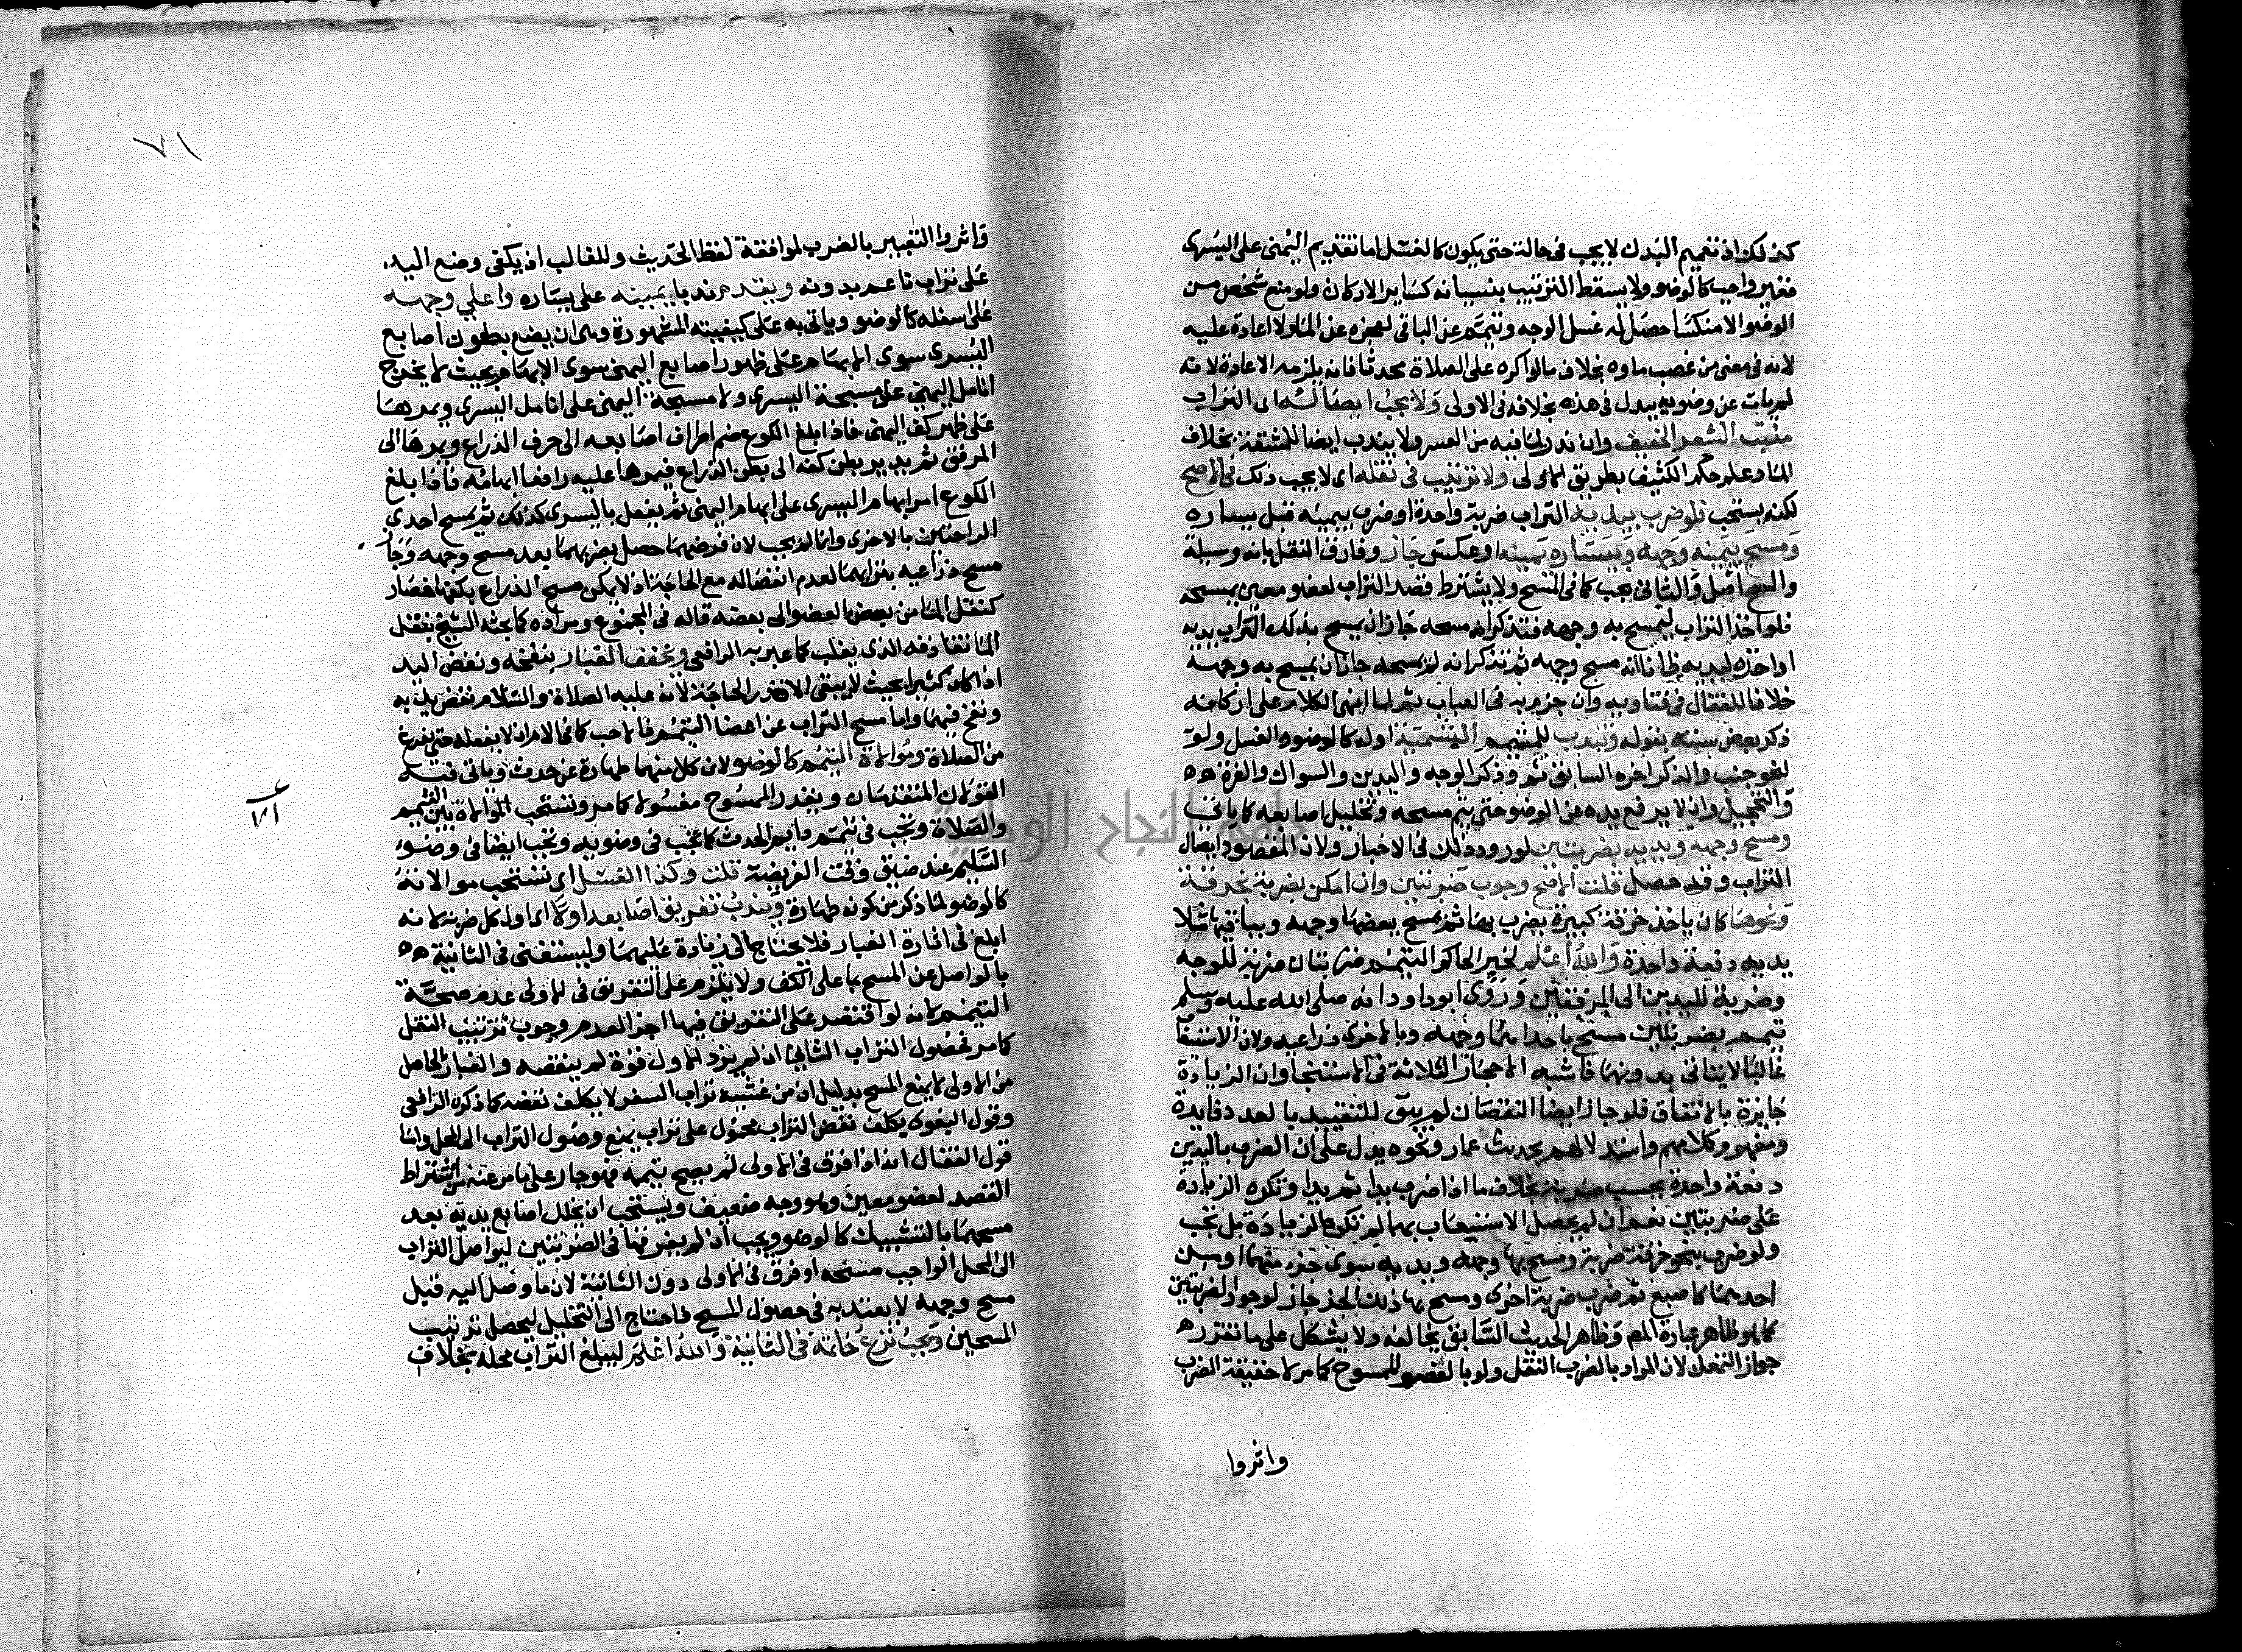 كذلك اذ تعميم البدن لا يجب في حالة حتى يكون كالغسل اما تقديم اليمنى على اليسرى
فغير واجب كالوضو ولا يسقط الترتيب بنسيانه كساير الاركان ولو منع شخص من
الوضو الا منكسا حصل له غسل الوجه وتيمم عن الباقي لعجزه عن الماء ولا اعادة عليه
لانه في معنى من غصب ماوه بخلاف ما لو اكره على الصلاة محدثا فانه يلزمه الاعادة لانه
لم يات عن وضويه ببدل في هذه بخلافه في الاولى ولا يجب ايصاله اي التراب
منبت الشعر الخفيف وان ندر لما فيه من العسر ولا يندب ايضا للمشقة بخلاف
الماء وعلم حكم الكثيف بطريق الاولى ولا ترتيب في نقله اي لا يجب ذلك في الاصح
لكنه يستحب فلو ضرب بيديه التراب ضربة واحدة او ضرب بيمينه قبل يساره
ومسح بيمينه وجهه وبيساره يمينه او عكس جاز وفارق النقل بانه وسيلة
والمسح اصل والثاني يجب كما في المسح ولا يشترط قصد التراب لعضو معين يمسحه
فلو اخذ التراب ليمسح به وجهه فتذكر انه مسحه جاز ان يمسح بذلك التراب يديه
او اخذه ليديه ظانا انه مسح وجهه ثم تذكر انه لم يمسحه جاز ان يمسح به وجهه
خلافا للقفال في فتاويه وان جزم به في العباب ثم لما انهى الكلام على اركانه
ذكر بعض سننه بقوله وتندب للمتيمم التسمية اوله كالوضوء الغسل ولو
لنحو جنب والذكر اخره السابق ثم وذكر الوجه واليدين والسواك والغرة
والتحجيل وان لا يرفع يده عن الوضو حتى يتم مسحه وتخليل اصابعه كما ياتي
ومسح وجهه ويديه بضربتين لورود ذلك في الاخبار ولان المقصود ايصال
التراب وقد حصل قلت الاصح وجوب ضربتين وان امكن بضربة بخرقة
ونحوها كان ياخذ خرقة كبيرة يضرب بها ثم يمسح ببعضها وجهه وبباقيها مثلا
يديه دفعة واحدة والله اعلم لخبر الحاكم التيمم ضربتان ضربة للوجه
وضربة لليدين الى المرفقين وروى ابو داود انه صلى الله عليه وسلم
تيمم بضربتين مسح باحداهما وجهه وبالاخرى ذراعيه ولان الاستيفا
غالبا لا يتاتى بدونهما فاشبه الاحجار الثلاثة في الاستنجا وان الزيادة
جايزة بالاتفاق فلو جاز ايضا النقصان لم يبق للتقييد بالعدد فايدة
ومفهوم كلامهم واستدلالهم بحديث عمار ونحوه يدل على ان الضرب باليدين
دفعة واحدة يحسب ضربة بخلاف ما اذا ضرب يدا ثم يدا وتكره الزيادة
على ضربتين نعم ان لم يحصل الاستيعاب بهما لم تكره الزيادة بل تجب
ولو ضرب بنحو خرقة ضربة ومسح بها وجهه ويديه سوى جزء منهما او من
احدهما كاصبع ثم ضرب ضربة اخرى ومسح بها ذلك الجز جاز لوجود الضربتين
كما هو ظاهر عبارة المص وظاهر الحديث السابق يخالفه ولا يشكل على ما تقرره
جواز التمعك لان المراد بالضرب النقل ولو بالعضو الممسوح كما مر لا حقيقة الضرب
واثروا
٧١
واثروا التعبير بالضرب لموافقة لفظ الحديث وللغالب اذ يكفي وضع اليد
على تراب ناعم بدونه ويقدم ندبا يمينه على يساره واعلي وجهه
على اسفله كالوضو وياتي به على كيفيته المشهورة وهي ان يضع بطون اصابع
اليسرى سوى الابهام على ظهور اصابع اليمنى سوى الابهام بحيث لا يخرج
انامل اليمنى على مسبحة اليسرى ولا مسبحة اليمنى على انامل اليسرى ويمرها
على ظهر كف اليمنى فاذا بلغ الكوع ضم اطراف اصابعه الى حرف الذراع ويمرها الى
المرفق ثم يدير بطن كفه الى بطن الذراع فيمرها عليه رافعا ابهامه فاذا بلغ
الكوع امر ابهام اليسرى على ابهام اليمنى ثم يفعل باليسرى كذلك ثم يمسح احدى
الراحتين بالاخرى وانما لم يجب لان فرضهما حصل بضربهما بعد مسح وجهه وجاز
مسح ذراعيه بترابهما لعدم انفصاله مع الحاجة اذ لا يمكن مسح الذراع بكفها فصار
كنقل الماء من بعض العضو الى بعضه قاله في المجموع ومراده كما بحثه الشيخ بنقل
الماء تقاذفه الذي يغلب كما عبر به الرافعي وتخفف الغبار بنفخه ونفض اليد
اذا كان كثيرا بحيث لا يبقى الا قدر الحاجة لانه عليه الصلاة والسلام نفض يديه
ونفخ فيهما واما مسح التراب عن اعضا التيمم فالاحب كما في الام ان لا يفعله حتى يفرغ
من الصلاة وموالاة التيمم كالوضو لان كلا منهما طهارة عن حدث وياتي فيه
القولان المتقدمان ويقدر الممسوح مغسولا كما مر وتستحب الموالاة بين التيمم
والصلاة وتجب في تيمم دايم الحدث كما تجب في وضويه وتجب ايضا في وضوء
السليم عند ضيق وقت الفريضة قلت وكذا الغسل اي تستحب موالاته
كالوضو لما ذكر من كونه طهارة ويندب تفريق اصابعه اولا اي اول كل ضربة لانه
ابلغ في اثارة الغبار فلا يحتاج الى زيادة عليهما وليستغني في الثانية
بالواصل عن المسح بما على الكف ولا يلزم على التفريق في الاولى عدم صحة
التيمم لانه لو اقتصر على التفريق فيها اجزا لعدم وجوب ترتيب النقل
كما مر فحصول التراب الثاني ان لم يزد الاول قوة لم ينقصه والغبار الحاصل
من الاولى لا يمنع المسح بدليل ان من غشيه تراب السفر لا يكلف نفضه كما ذكره الرافعي
وقول البغوي يكلف نفض التراب محمول على تراب يمنع وصول التراب الى المحل واما
قول القفال انه اذا فرق في الاولى لم يصح تيممه فهو جار على ما مر عنه من اشتراط
القصد لعضو معين وهو وجه ضعيف ويستحب ان يخلل اصابع يديه بعد
مسحهما بالتشبيك كالوضو ويجب ان لم يفرقها في الضربتين ليواصل التراب
الى المحل الواجب مسحه او فرق في الاولى دون الثانية لان ما وصل اليه قبل
مسح وجهه لا يعتد به في حصول المسح فاحتاج الى التخليل ليحصل ترتيب
المسحين ويجب نزع خاتمه في الثانية والله اعلم ليبلغ التراب محله بخلاف